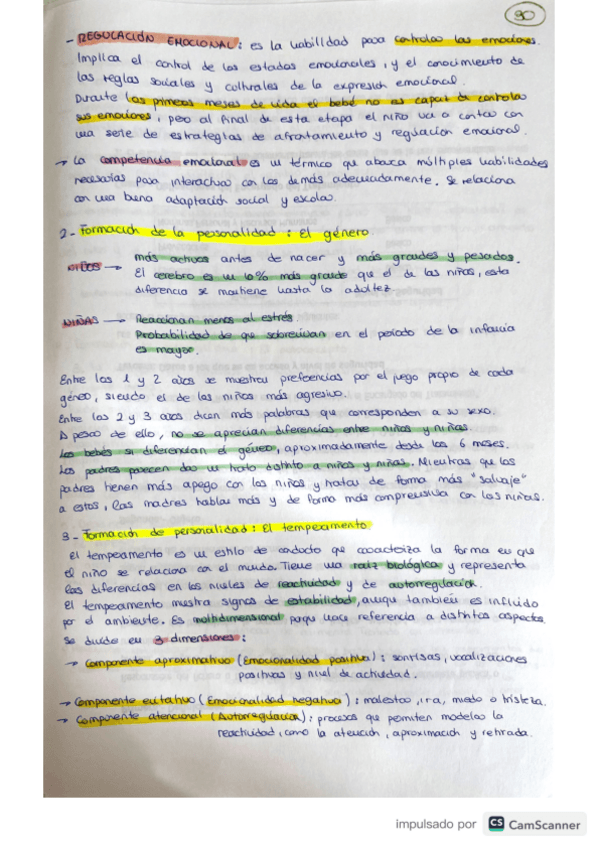 90
- REGULACIÓN EMOCIONAL: es la habilidad para controlar las emociones.
Implica el control de los estados emocionales, y el conocimiento de
las reglas sociales y culturales de la expresión emocional.
Durante los primeros meses de vida el bebé no es capaz de controlar
sus emociones, pero al final de esta etapa el niño va a contar con
una serie de estrategias de afrontamiento y regulación emocional.
→ La competencia emocional es un término que abarca múltiples habilidades
necesarias para interactuar con los demás adecuadamente. Se relaciona
con una buena adaptación social y escolar.
2- Formación de la personalidad: El género.
NIÑOS → más activos antes de nacer y más grandes y pesados.
El cerebro es un 10% más grande que el de las niñas, esta
diferencia se mantiene hasta la adultez
NIÑAS → Reaccionan menos al estrés.
Probabilidad de que sobrevivan en el periodo de la infancia
es mayor.
Entre los 1 y 2 años se muestran preferencias por el juego propio de cada
género, siendo el de los niños más agresivo.
Entre los 2 y 3 años dicen más palabras que corresponden a su sexo.
A pesar de ello, no se aprecian diferencias entre niños y niñas.
Los bebés si diferencian el género, aproximadamente desde los 6 meses.
Los padres parecen dar un trato distinto a niños y niñas. Mientras que los
padres tienen más apego con los niños y tratan de forma más "salvaje"
a estos, las madres hablan más y de forma más comprensiva con las niñas.
3- Formación de personalidad: El temperamento
El temperamento es un estilo de conducta que caracteriza la forma en que
el niño se relaciona con el mundo. Tiene una raíz biológica y representa
las diferencias en los niveles de reactividad y de autorregulación.
El temperamento muestra signos de estabilidad, aunque también es influido
por el ambiente. Es multidimensional porque hace referencia a distintos aspectos.
Se divide en 3 dimensiones:
→ Componente aproximativo (Emocionalidad positiva): sonrisas, vocalizaciones
positivas y nivel de actividad.
→ Componente evitativo (Emocionalidad negativa): malestar, ira, miedo o tristeza.
→ Componente atencional (Autorregulación): procesos que permiten modelar la
reactividad, como la atención, aproximación y retirada.
impulsado por CS CamScanner